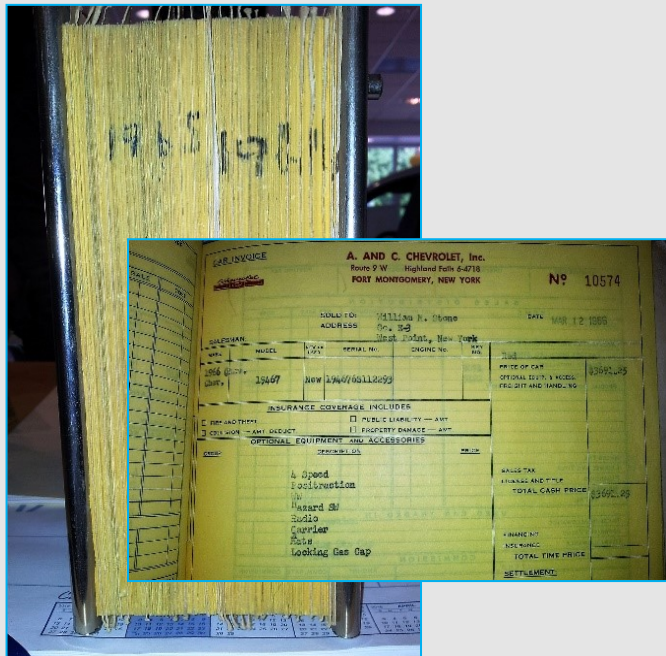 1965 196
CAR INVOICE
A. AND C. CHEVROLET, Inc.
Route 9 W Highland Falls 6-4718
FORT MONTGOMERY, NEW YORK
Nº 10574
SOLD TO: William M. Stone
DATE MAR 12 1966
ADDRESS Co. E-3
West Point, New York
SALESMAN
MAKE MODEL SERIAL No. ENGINE No. KEY No.
1966 Chev. 19467 New 194676S112293
PRICE OF CAR
OPTIONAL EQUIP. & ACCESS.
FREIGHT AND HANDLING
INSURANCE COVERAGE INCLUDES
FIRE AND THEFT PUBLIC LIABILITY — AMT
COLLISION — AMT DEDUCT. PROPERTY DAMAGE — AMT
OPTIONAL EQUIPMENT AND ACCESSORIES
DESCRIPTION PRICE
4 Speed
Positraction
WW
Hazard SW
Radio
Carrier
Mats
Locking Gas Cap
SALES TAX
LICENSE AND TITLE
TOTAL CASH PRICE
FINANCING
INSURANCE
TOTAL TIME PRICE
SETTLEMENT: